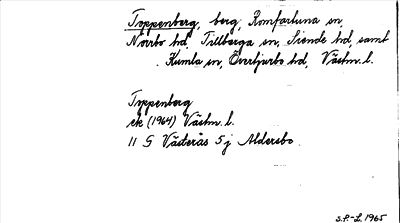 Toppenberg, berg, Romfartuna sn,
Norrbo hd, Tillberga sn, Siende hd, samt
Kumla sn, Övertjurbo hd, Västm. l.
Toppenberg
ek (1964) Västm. l.
11 G Västerås 5 j Aldersbo.
S.P.-L. 1965